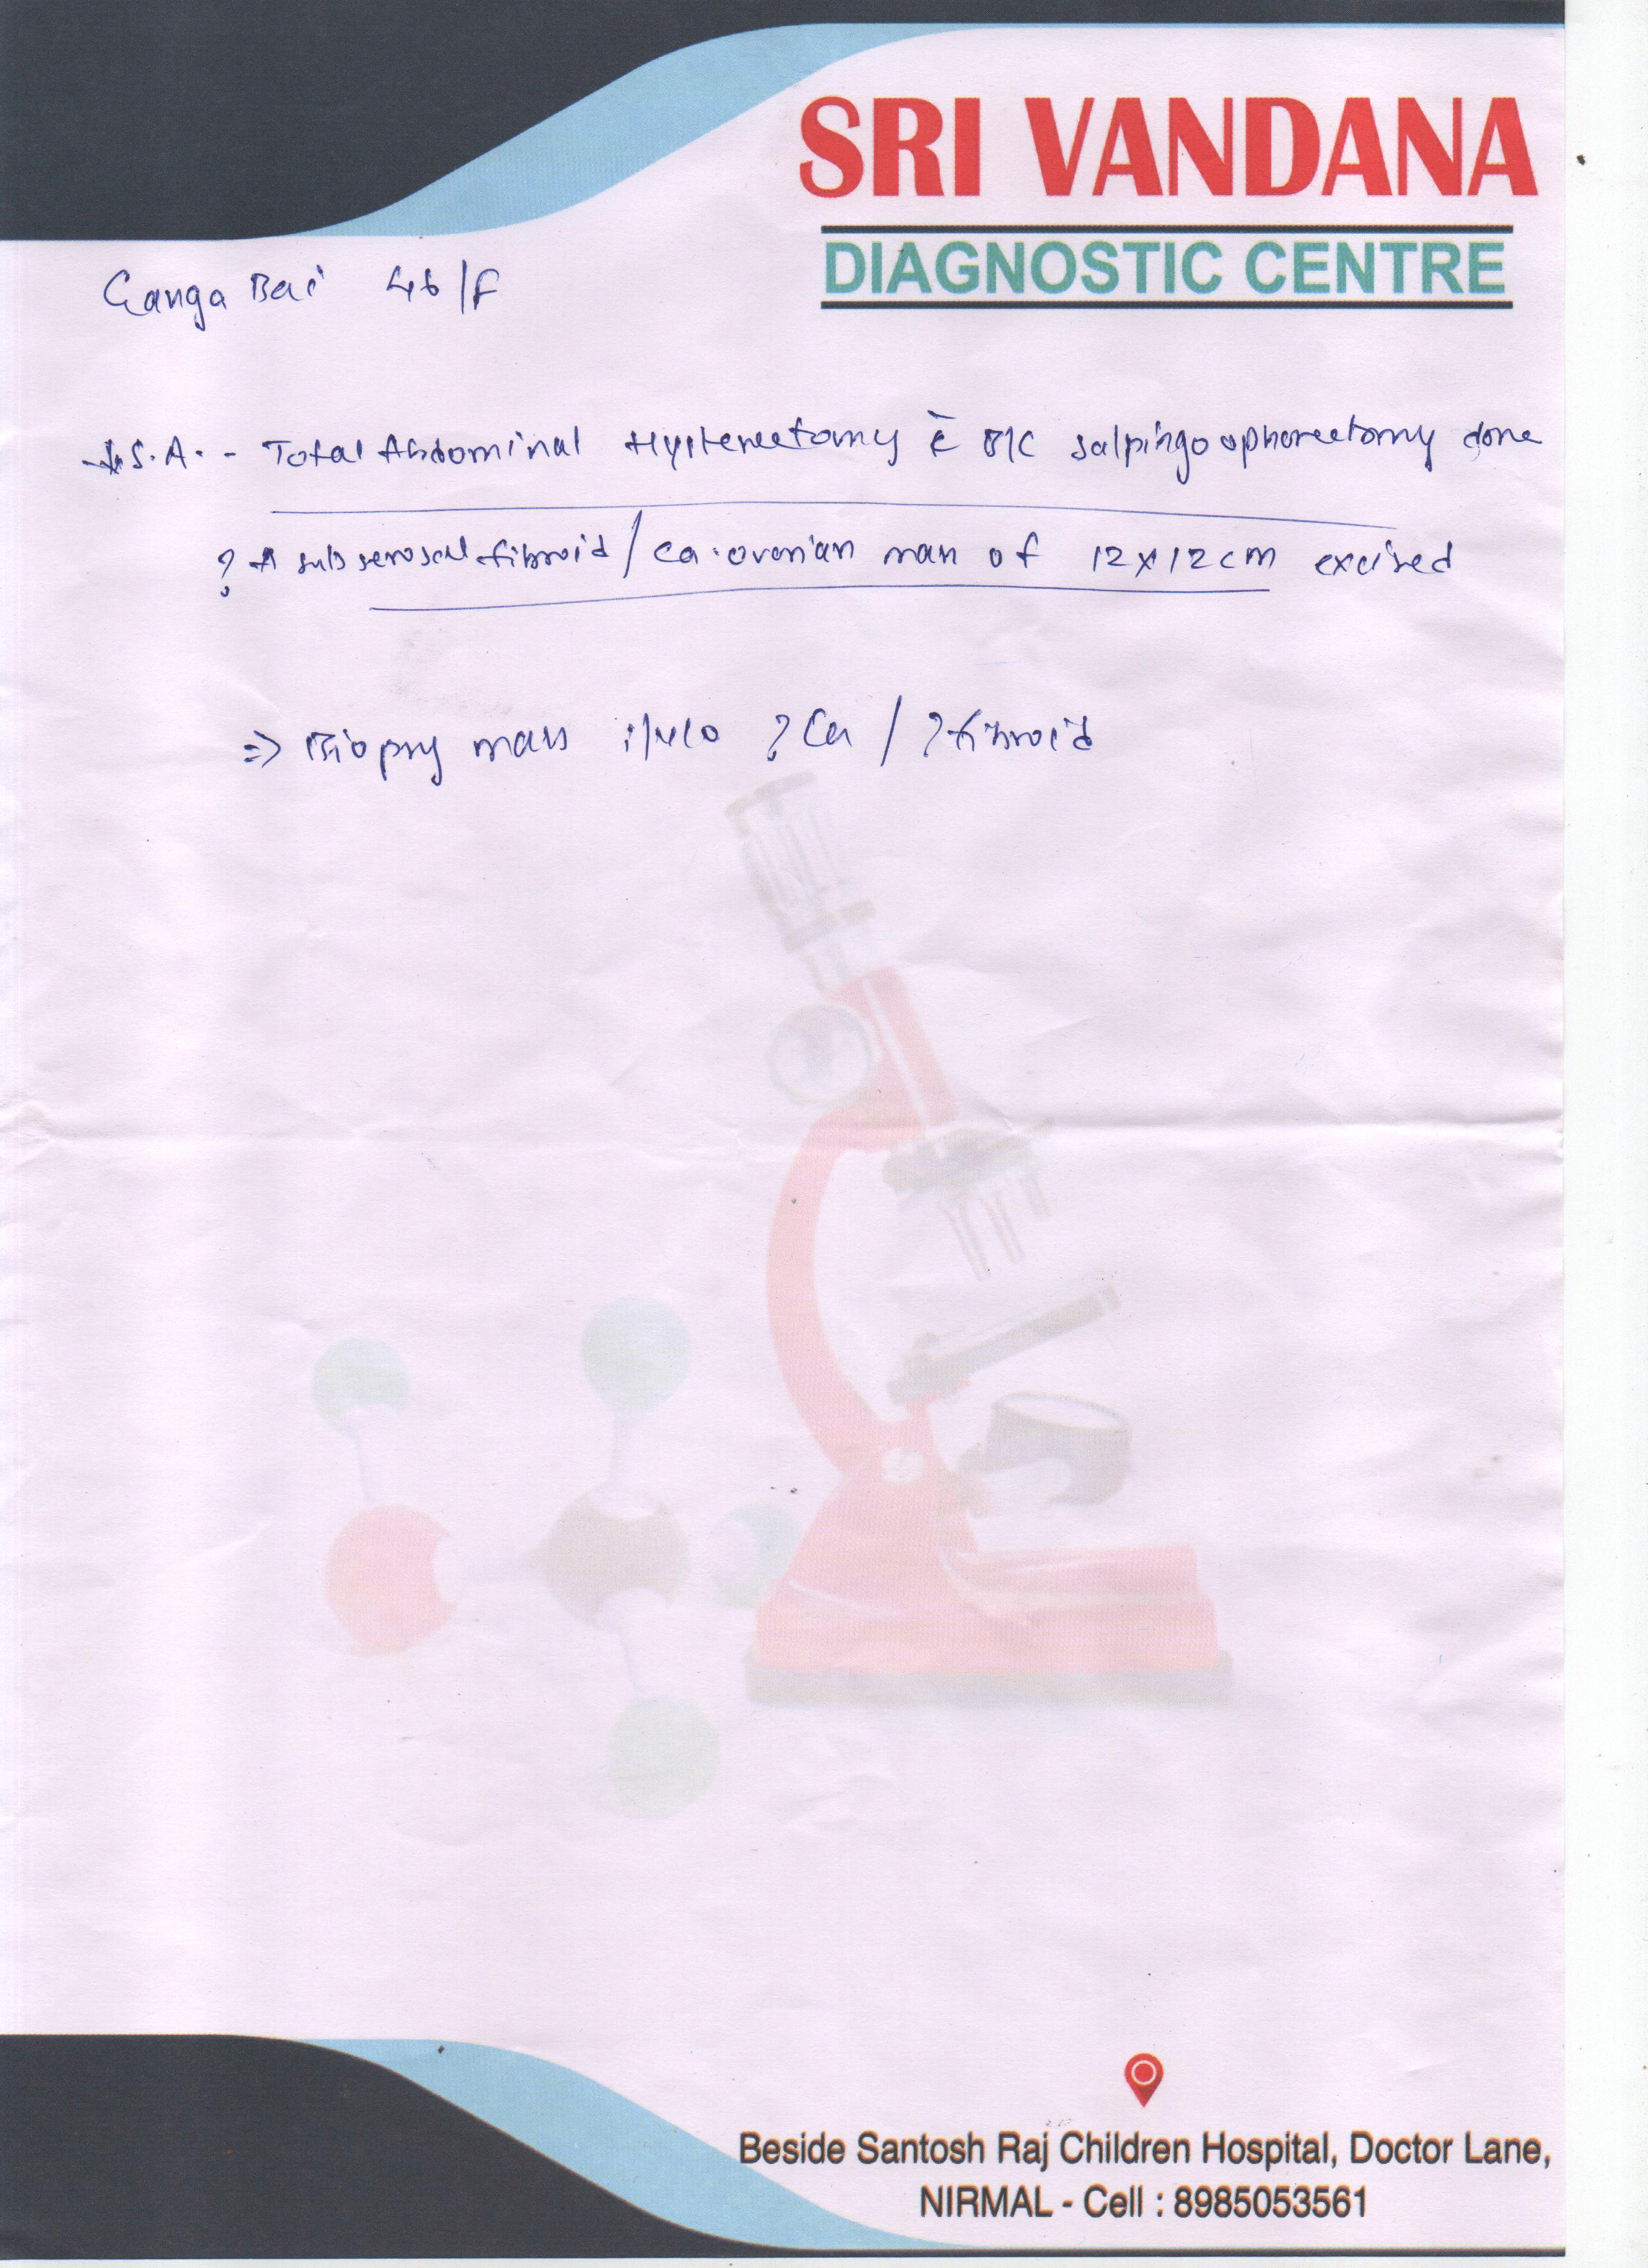 SRI VANDANA
DIAGNOSTIC CENTRE
Ganga Bai 46/F
S.A. - Total Abdominal Hysterectomy c̄ B/L salpingo ophorectomy done
? A subserosal fibroid / Ca. ovarian mass of 12x12cm excised
=> Biopsy mass ? Ca / ? fibroid
Beside Santosh Raj Children Hospital, Doctor Lane,
NIRMAL - Cell : 8985053561